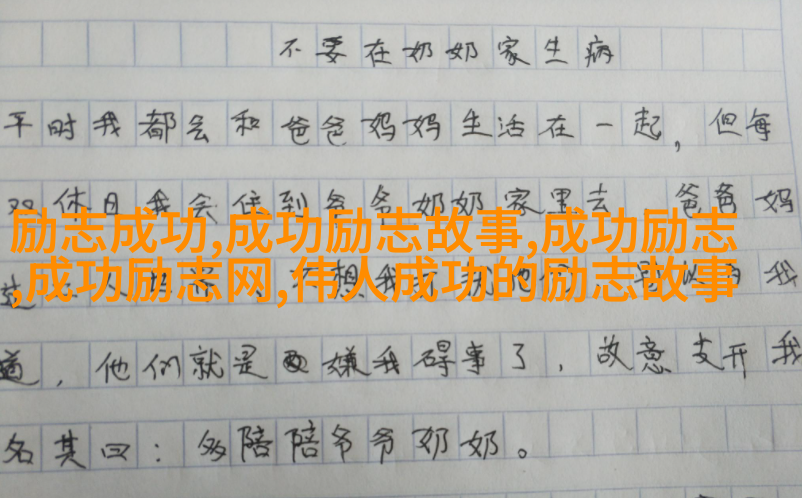 不要在奶奶家生病
平时我都会和爸爸妈妈生活在一起，但每
双休日我会住到爷爷奶奶家里去 爸爸妈
励志成功,成功励志故事,成功励志
,成功励志网,伟人成功的励志故事
道，他们就是嫌我碍事了，故意支开我
名其曰：多陪陪爷爷奶奶。